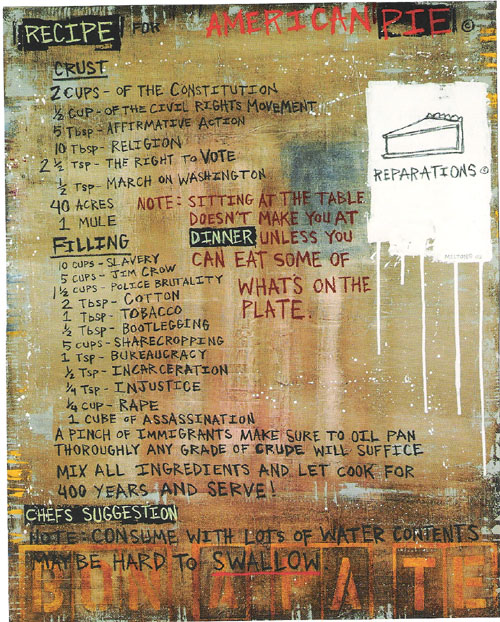 RECIPE FOR AMERICAN PIE ©
CRUST
2 CUPS - OF THE CONSTITUTION
½ CUP - OF THE CIVIL RIGHTS MOVEMENT
5 Tbsp - AFFIRMATIVE ACTION
10 Tbsp - RELIGION
2 ½ TSP - THE RIGHT TO VOTE
½ TSP - MARCH ON WASHINGTON
40 ACRES
1 MULE
REPARATIONS ©
NOTE: SITTING AT THE TABLE
DOESN'T MAKE YOU AT
DINNER UNLESS YOU
CAN EAT SOME OF
WHAT'S ON THE
PLATE.
FILLING
10 CUPS - SLAVERY
5 CUPS - JIM CROW
1½ CUPS - POLICE BRUTALITY
2 Tbsp - COTTON
1 Tbsp - TOBACCO
½ Tbsp - BOOTLEGGING
5 CUPS - SHARECROPPING
1 TSP - BUREAUCRACY
½ TSP - INCARCERATION
¼ TSP - INJUSTICE
¼ CUP - RAPE
1 CUBE OF ASSASSINATION
A PINCH OF IMMIGRANTS MAKE SURE TO OIL PAN
THOROUGHLY ANY GRADE OF CRUDE WILL SUFFICE
MIX ALL INGREDIENTS AND LET COOK FOR
400 YEARS AND SERVE!
CHEFS SUGGESTION
NOTE: CONSUME WITH LOTS OF WATER CONTENTS
MAY BE HARD TO SWALLOW.
BON APATE